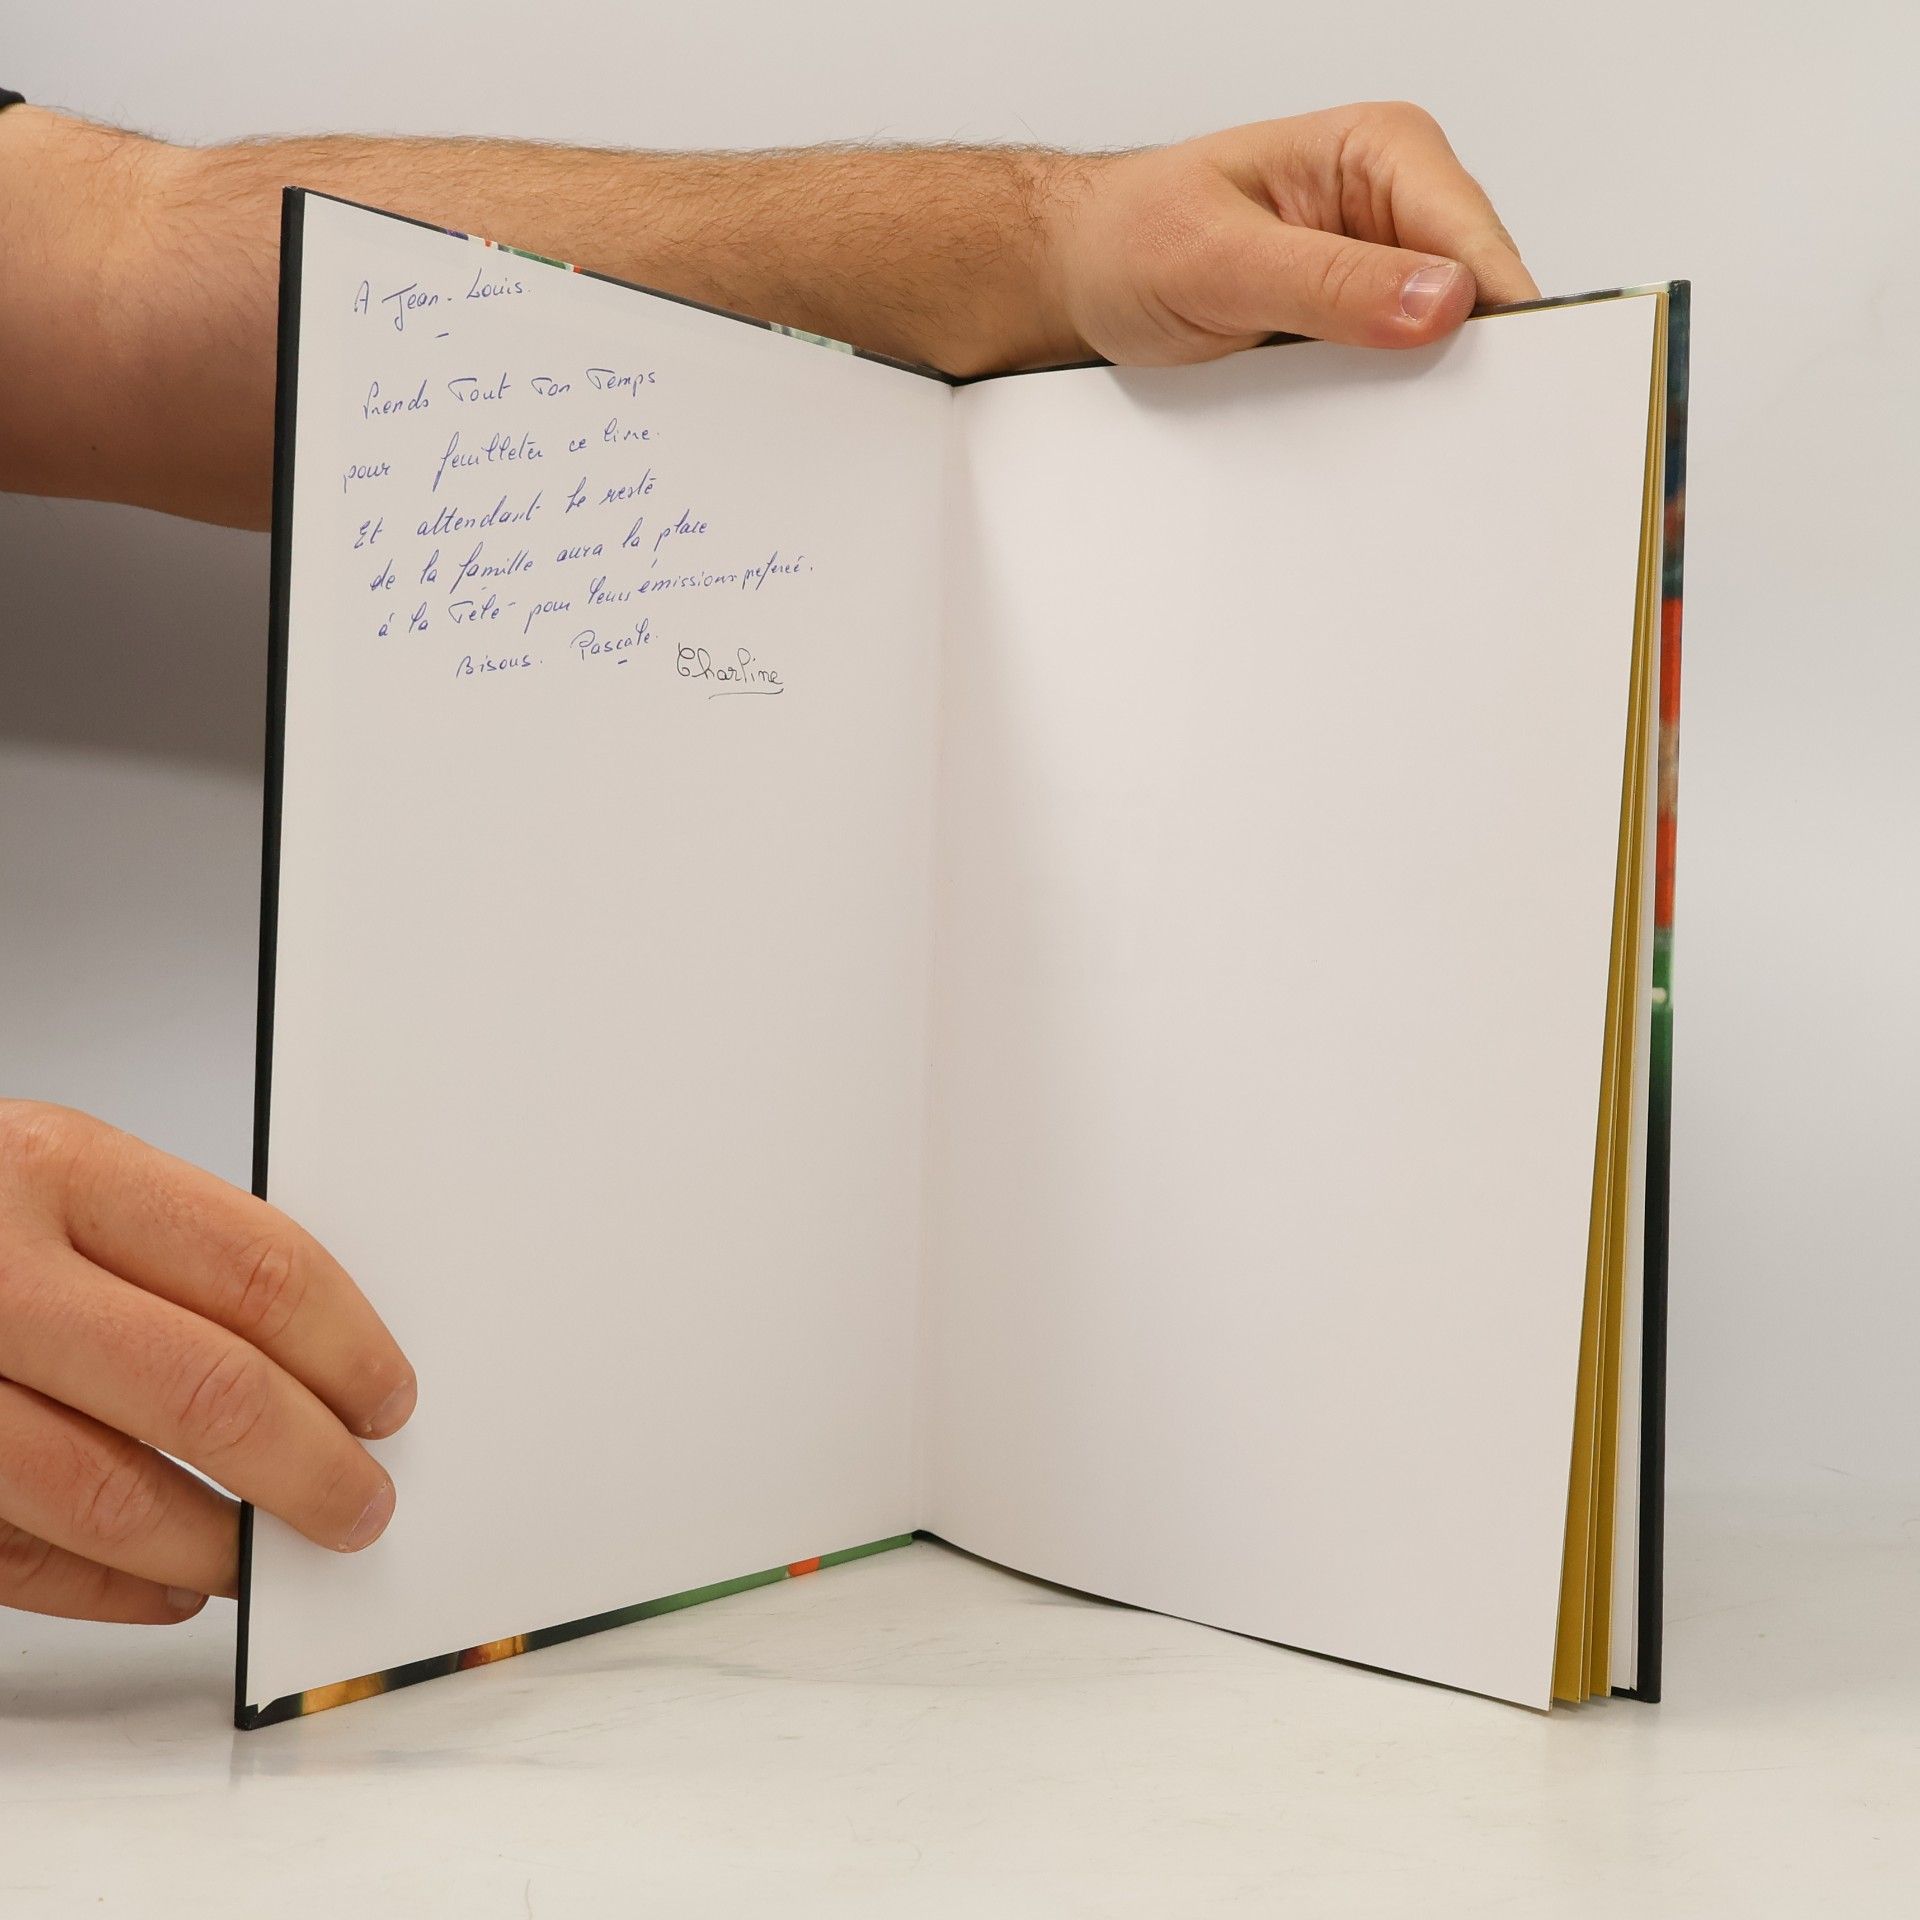 A Jean-Louis.
Prends Tout Ton Temps
pour feuilleter ce livre.
Et attendant le reste
de la famille aura la place
à la Télé pour leurs émissions préferé.
Bisous. Pascale.
Charline